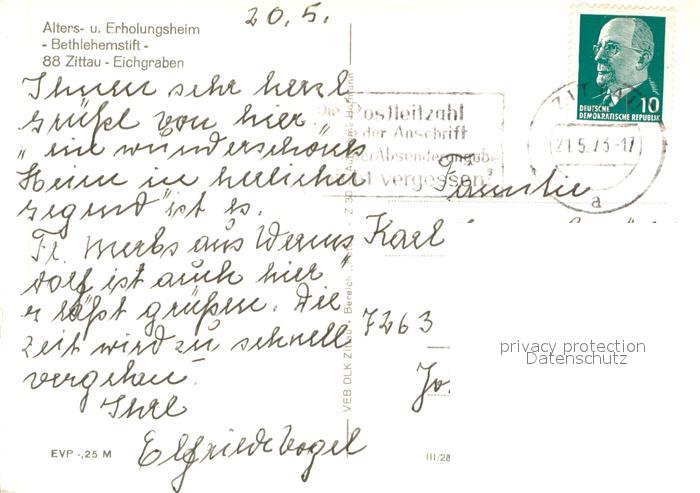 20.5.
Alters- u. Erholungsheim
- Bethlehemstift -
88 Zittau - Eichgraben
Ihnen sehr herzl
Grüße von hier
"ein wunderschönes
Heim in herrlicher
Gegend" ist es.
Fr. Merbs aus Werms
dorf ist auch hier
er läßt grüßen. Die
Zeit wird zu schnell
vergehen.
Ihre
Elfriede Vogel
EVP -,25 M
VEB DLK Zittau - Bereich
Die Postleitzahl
der Anschrift
Absenderangabe
vergessen
ZITTAU
21.5.73-17
a
10
DEUTSCHE
DEMOKRATISCHE REPUBLIK
Familie
Karl
7263
Jo
III/28
privacy protection
Datenschutz